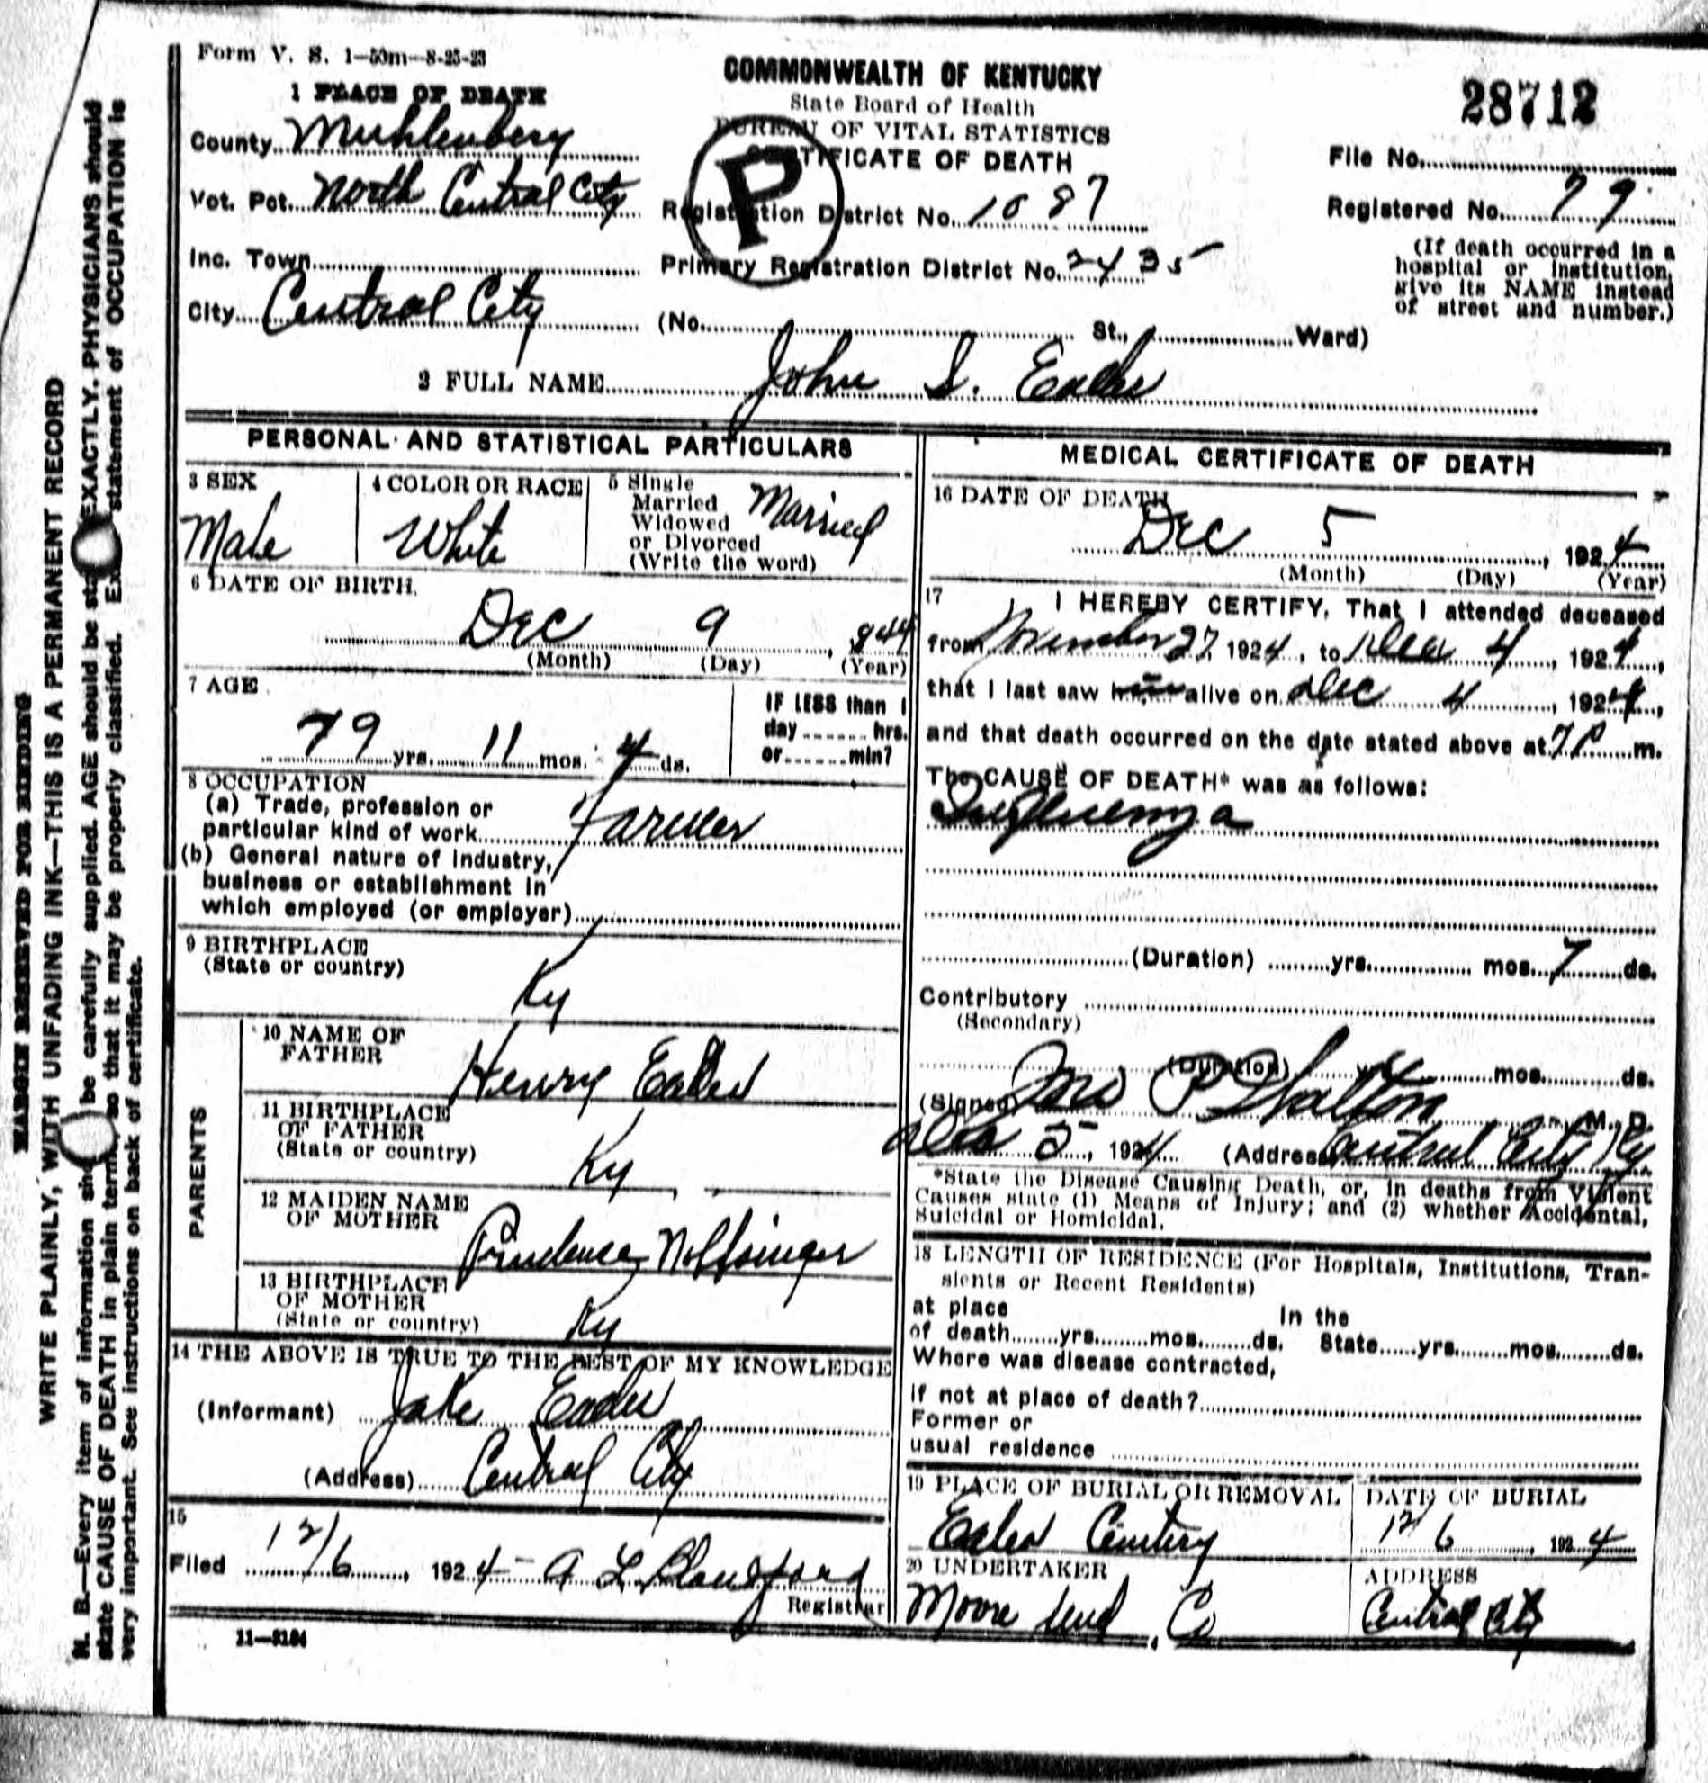 Form V. S. 1—50m—8-25-23
COMMONWEALTH OF KENTUCKY
State Board of Health
BUREAU OF VITAL STATISTICS
CERTIFICATE OF DEATH
28712
P
1 PLACE OF DEATH
County Muhlenberg
File No.
Vot. Pct. North Central City
Registration District No. 1087
Registered No. 79
Inc. Town
Primary Registration District No. 2435
(If death occurred in a
hospital or institution,
give its NAME instead
of street and number.)
City Central City
(No. St., Ward)
2 FULL NAME John S. Eades
PERSONAL AND STATISTICAL PARTICULARS
3 SEX
Male
4 COLOR OR RACE
White
5 Single
Married
Widowed
or Divorced
(Write the word)
Married
6 DATE OF BIRTH
Dec 9, 844
(Month) (Day) (Year)
7 AGE
79 yrs. 11 mos. 4 ds.
IF LESS than 1
day hrs.
or min?
8 OCCUPATION
(a) Trade, profession or
particular kind of work Farmer
(b) General nature of Industry,
business or establishment in
which employed (or employer)
9 BIRTHPLACE
(State or country)
Ky
PARENTS
10 NAME OF
FATHER
Henry Eades
11 BIRTHPLACE
OF FATHER
(State or country)
Ky
12 MAIDEN NAME
OF MOTHER
Prudence Noffsinger
13 BIRTHPLACE
OF MOTHER
(State or country)
Ky
14 THE ABOVE IS TRUE TO THE BEST OF MY KNOWLEDGE
(Informant) Jake Eades
(Address) Central City
15
Filed 12/6, 1924 A L Blandford
Registrar
11—3184
MEDICAL CERTIFICATE OF DEATH
16 DATE OF DEATH
Dec 5, 1924
(Month) (Day) (Year)
17 I HEREBY CERTIFY, That I attended deceased
from November 27, 1924, to Dec 4, 1924,
that I last saw h alive on Dec 4, 1924,
and that death occurred on the date stated above at 7 P m.
The CAUSE OF DEATH* was as follows:
Influenza
(Duration) yrs. mos. 7 ds.
Contributory
(Secondary)
(Duration) yrs. mos. ds.
(Signed) Jno P Walton, M. D.
Dec 5, 1924 (Address) Central City Ky
*State the Disease Causing Death, or, in deaths from Violent
Causes state (1) Means of Injury; and (2) whether Accidental,
Suicidal or Homicidal.
18 LENGTH OF RESIDENCE (For Hospitals, Institutions, Tran-
sients or Recent Residents)
at place In the
of death yrs. mos. ds. State yrs. mos. ds.
Where was disease contracted,
if not at place of death?
Former or
usual residence
19 PLACE OF BURIAL OR REMOVAL
Eades Cemtery
DATE OF BURIAL
12 6, 1924
20 UNDERTAKER
Moore Und. Co
ADDRESS
Central City
MARGIN RESERVED FOR BINDING
WRITE PLAINLY, WITH UNFADING INK—THIS IS A PERMANENT RECORD
N. B.—Every item of information should be carefully supplied. AGE should be stated EXACTLY. PHYSICIANS should
state CAUSE OF DEATH in plain terms, so that it may be properly classified. Exact statement of OCCUPATION is
very important. See instructions on back of certificate.